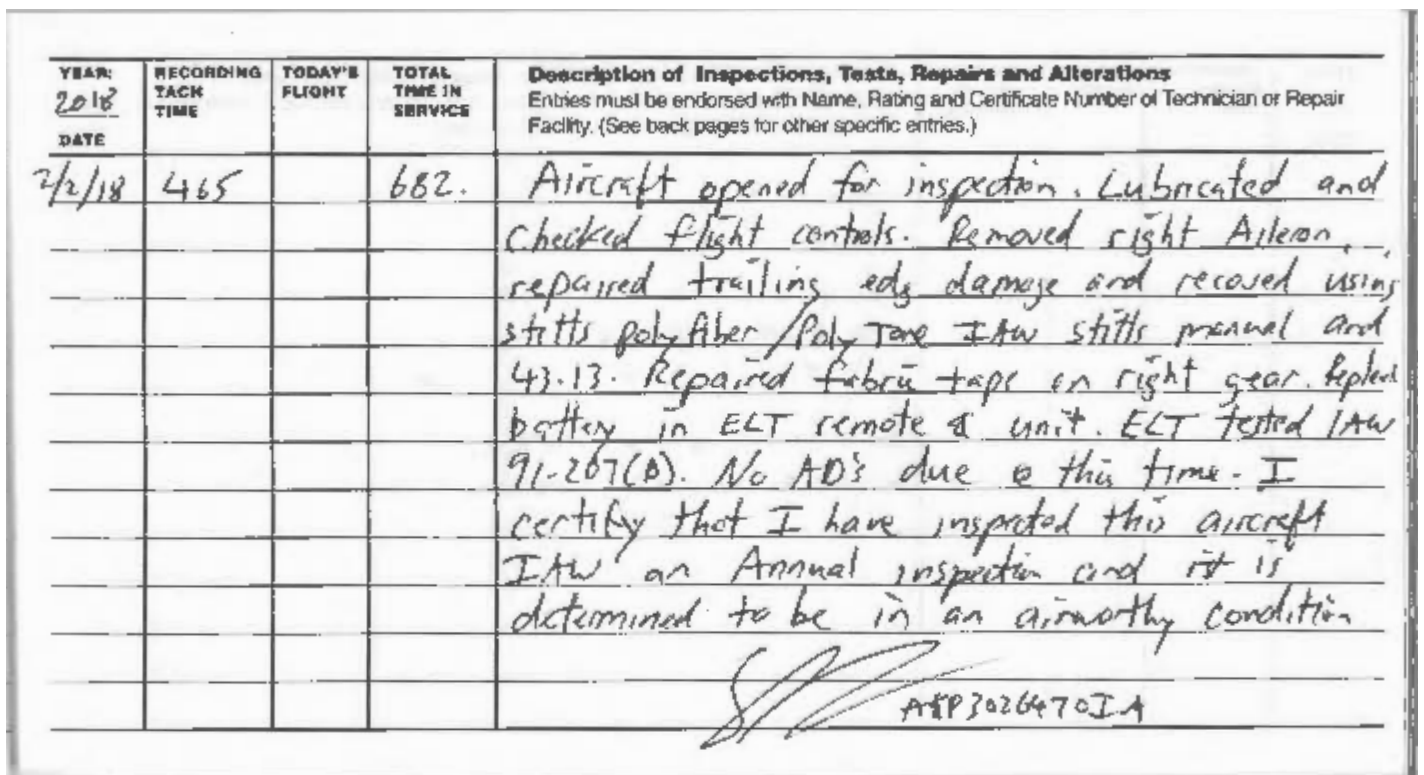 YEAR: RECORDING TODAY'S TOTAL Description of Inspections, Tests, Repairs and Alterations
2018 TACH FLIGHT TIME IN Entries must be endorsed with Name, Rating and Certificate Number of Technician or Repair
DATE TIME SERVICE Facility. (See back pages for other specific entries.)
2/2/18 465 682. Aircraft opened for inspection. Lubricated and
checked flight controls. Removed right Aileron,
repaired trailing edg damage and recoved using
stitts poly fiber/Poly Tone IAW stitts manual and
43-13. Repaired fabric tape on right gear.
battery in ELT remote & unit. ELT tested IAW
91-207(D). No AD's due @ this time. I
certify that I have inspected this aircraft
IAW an Annual inspection and it is
determined to be in an airworthy condition
A&P3026470IA